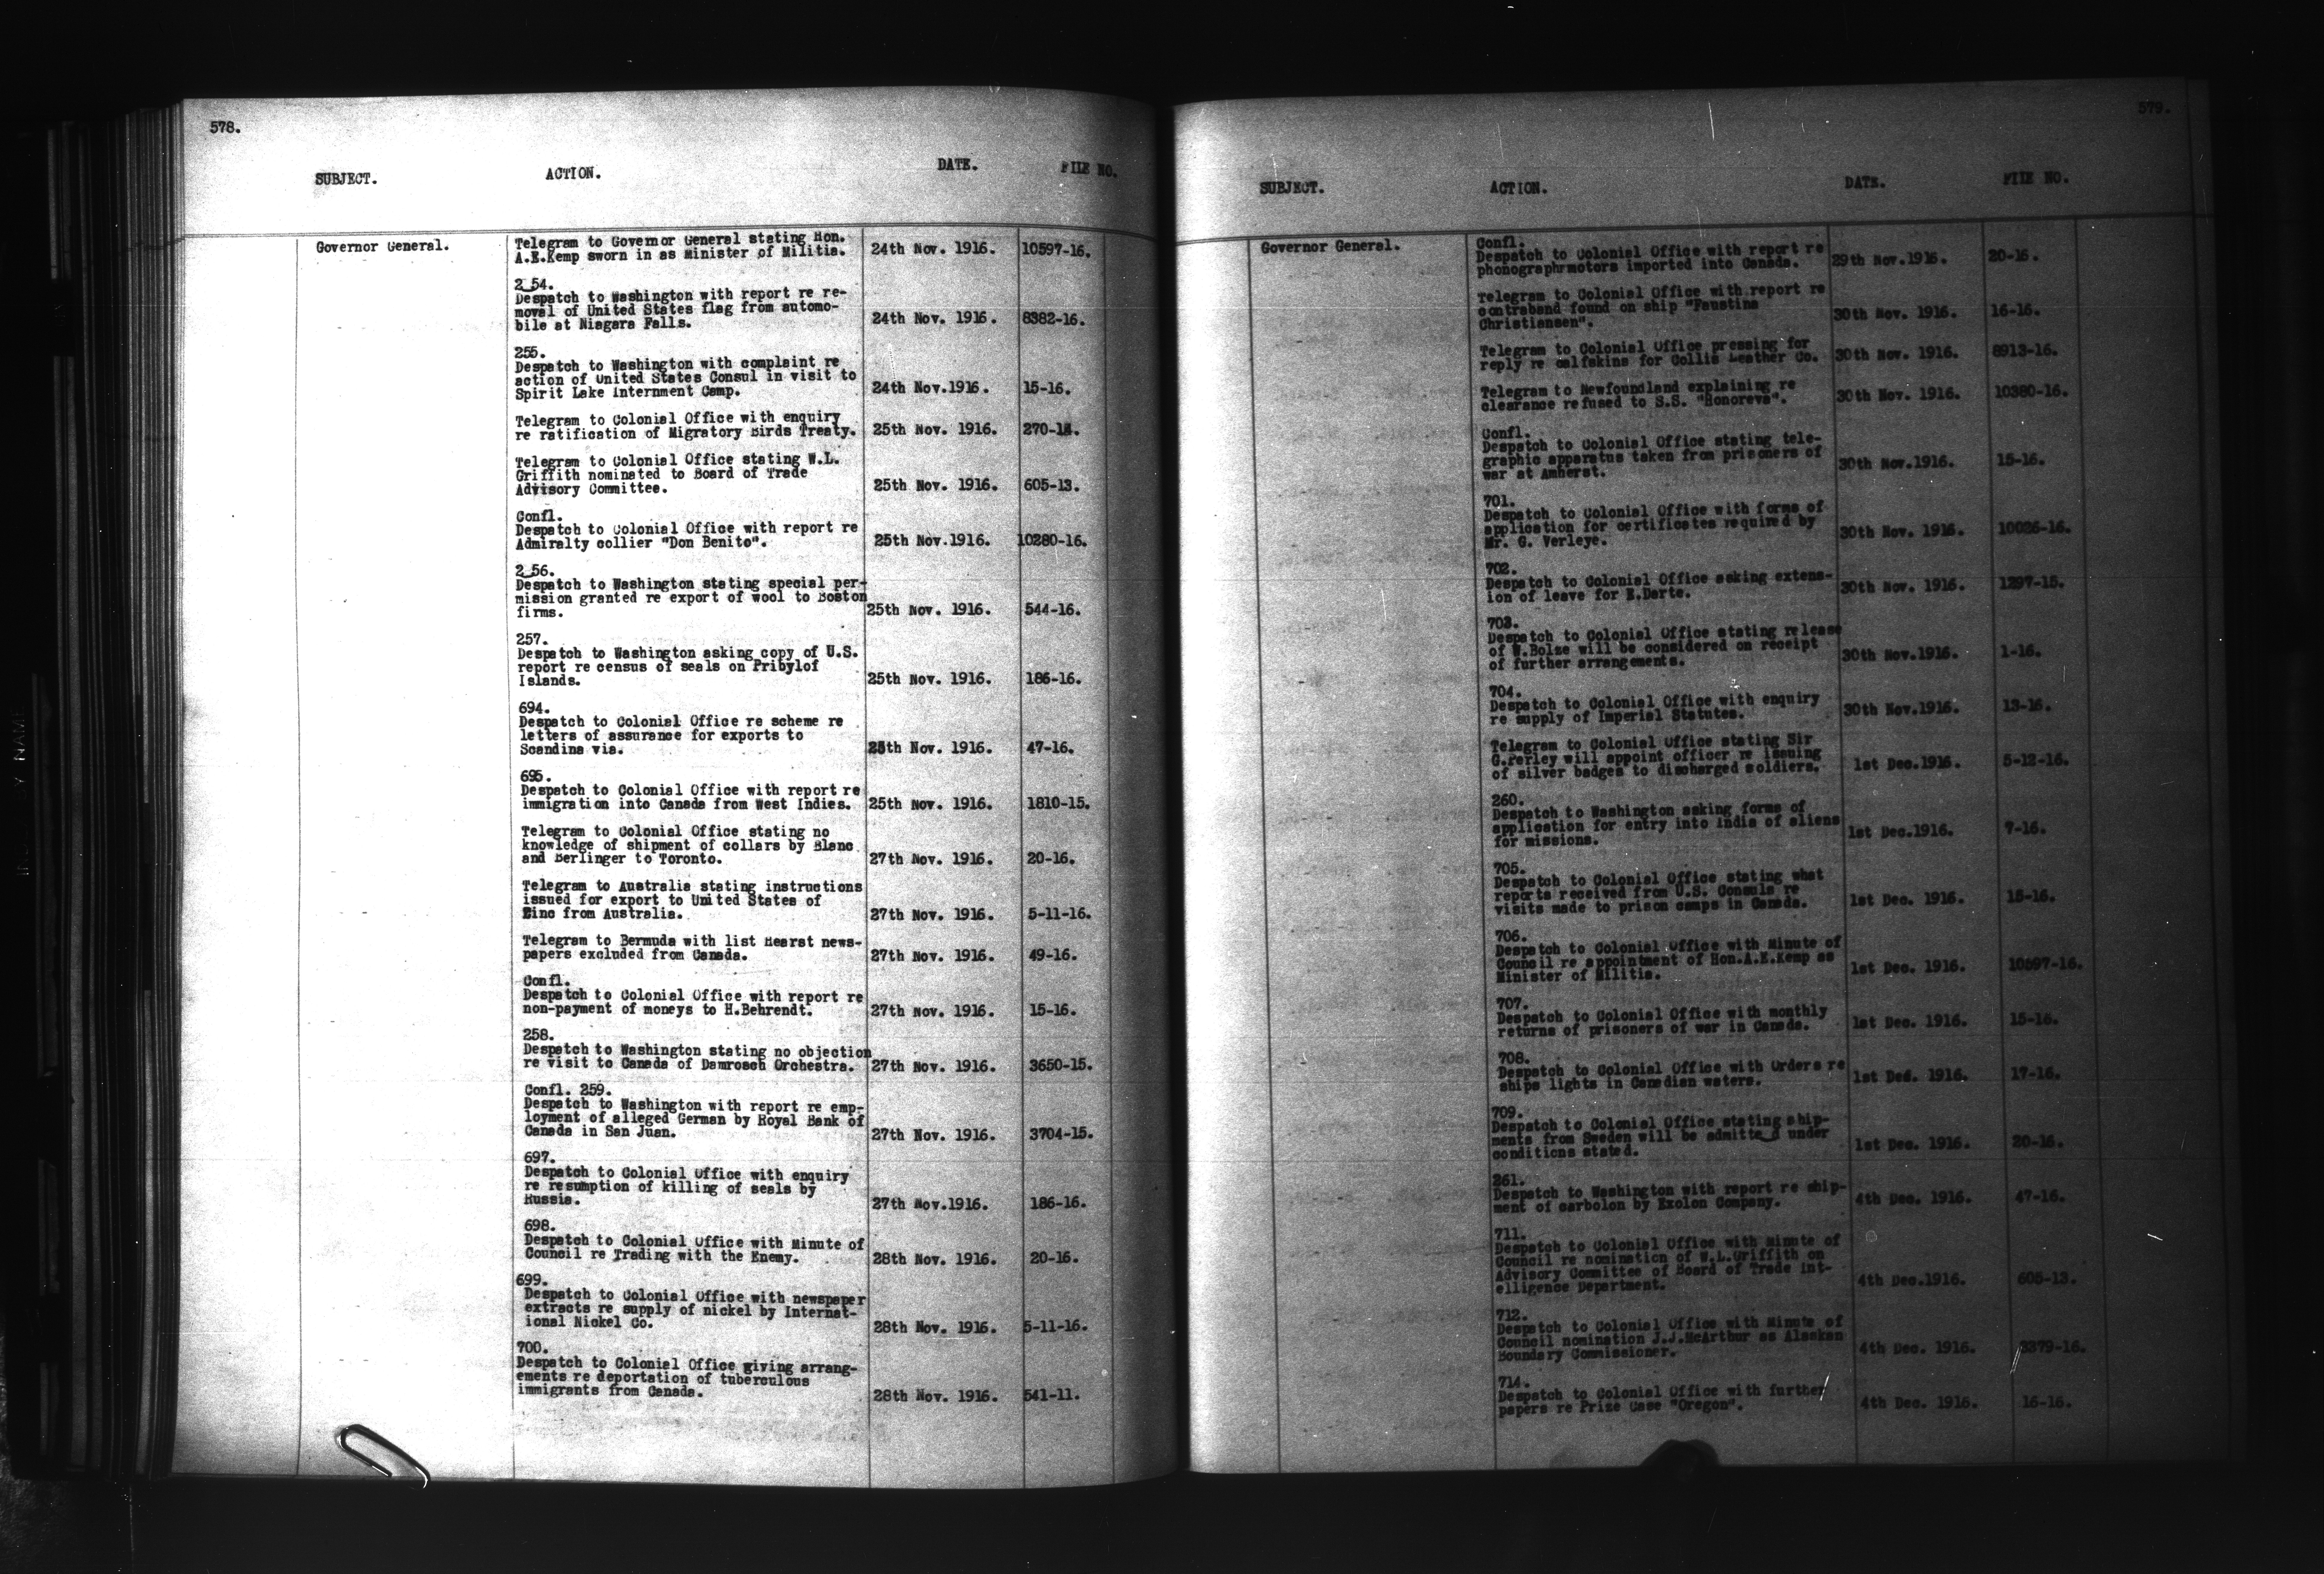 578.
SUBJECT. ACTION. DATE. FILE NO.
Governor General.
Telegram to Governor General stating Hon.
A.E.Kemp sworn in as Minister of Militia. 24th Nov. 1916. 10597-16.
2 54.
Despatch to Washington with report re re-
moval of United States flag from automo-
bile at Niagara Falls. 24th Nov. 1916. 8382-16.
255.
Despatch to Washington with complaint re
action of United States Consul in visit to
Spirit Lake Internment Camp. 24th Nov.1916. 15-16.
Telegram to Colonial Office with enquiry
re ratification of Migratory Birds Treaty. 25th Nov. 1916.
Telegram to Colonial Office stating W.L.
Griffith nominated to Board of Trade
Advisory Committee. 25th Nov. 1916. 605-13.
Confl.
Despatch to Colonial Office with report re
Admiralty collier "Don Benito". 25th Nov.1916. 10280-16.
2 56.
Despatch to Washington stating special per-
mission granted re export of wool to Boston
firms. 25th Nov. 1916. 544-16.
257.
Despatch to Washington asking copy of U.S.
report re census of seals on Pribylof
Islands. 25th Nov. 1916. 186-16.
694.
Despatch to Colonial Office re scheme re
letters of assurance for exports to
Scandina via. 25th Nov. 1916. 47-16.
695.
Despatch to Colonial Office with report re
immigration into Canada from West Indies. 25th Nov. 1916. 1810-15.
Telegram to Colonial Office stating no
knowledge of shipment of collars by Blanc
and Berlinger to Toronto. 27th Nov. 1916. 20-16.
Telegram to Australia stating instructions
issued for export to United States of
Zinc from Australia. 27th Nov. 1916. 5-11-16.
Telegram to Bermuda with list Hearst news-
papers excluded from Canada. 27th Nov. 1916. 49-16.
Confl.
Despatch to Colonial Office with report re
non-payment of moneys to H.Behrendt. 27th Nov. 1916. 15-16.
258.
Despatch to Washington stating no objection
re visit to Canada of Damrosch Orchestra. 27th Nov. 1916. 3650-15.
Confl. 259.
Despatch to Washington with report re emp-
loyment of alleged German by Royal Bank of
Canada in San Juan. 27th Nov. 1916. 3704-15.
697.
Despatch to Colonial Office with enquiry
re resumption of killing of seals by
Russia. 27th Nov.1916. 186-16.
698.
Despatch to Colonial Office with Minute of
Council re Trading with the Enemy. 28th Nov. 1916. 20-16.
699.
Despatch to Colonial Office with newspaper
extracts re supply of nickel by Internat-
ional Nickel Co. 28th Nov. 1916. 5-11-16.
700.
Despatch to Colonial Office giving arrang-
ements re deportation of tuberculous
immigrants from Canada. 28th Nov. 1916. 541-11.
579.
SUBJECT. ACTION. DATE. FILE NO.
Governor General.
Confl.
Despatch to Colonial Office with report re
phonographrmotors imported into Canada. 29th Nov.1916. 20-16.
Telegram to Colonial Office with report re
contraband found on ship "Faustina
Christiansen". 30th Nov. 1916. 16-16.
Telegram to Colonial Office pressing for
reply re calfskins for Collis Leather Co. 30th Nov. 1916. 8913-16.
Telegram to Newfoundland explaining re
clearance refused to S.S. "Honoreva". 30th Nov. 1916. 10380-16.
Confl.
Despatch to Colonial Office stating tele-
graphic apparatus taken from prisoners of
war at Amherst. 30th Nov.1916. 15-16.
701.
Despatch to Colonial Office with forms of
application for certificates required by
Mr. G. Verleye. 30th Nov. 1916. 10026-16.
702.
Despatch to Colonial Office asking extens-
ion of leave for E.Darte. 30th Nov. 1916. 1297-15.
703.
Despatch to Colonial Office stating release
of W.Bolze will be considered on receipt
of further arrangements. 30th Nov.1916. 1-16.
704.
Despatch to Colonial Office with enquiry
re supply of Imperial Statutes. 30th Nov.1916. 13-16.
Telegram to Colonial Office stating Sir
G.Perley will appoint officer re issuing
of silver badges to discharged soldiers. 1st Dec.1916. 5-12-16.
260.
Despatch to Washington asking forms of
application for entry into India of aliens
for missions. 1st Dec.1916. 7-16.
705.
Despatch to Colonial Office stating what
reports received from U.S. Consuls re
visits made to prison camps in Canada. 1st Dec. 1916. 15-16.
706.
Despatch to Colonial Office with Minute of
Council re appointment of Hon.A.E.Kemp as
Minister of Militia. 1st Dec. 1916. 10597-16.
707.
Despatch to Colonial Office with monthly
returns of prisoners of war in Canada. 1st Dec. 1916. 15-16.
708.
Despatch to Colonial Office with Orders re
ships lights in Canadian waters. 1st Dec. 1916. 17-16.
709.
Despatch to Colonial Office stating ship-
ments from Sweden will be admitte d under
conditions stated. 1st Dec. 1916. 20-16.
261.
Despatch to Washington with report re ship-
ment of carbolon by Exolon Company. 4th Dec. 1916. 47-16.
711.
Despatch to Colonial Office with Minute of
Council re nomination of W.L.Griffith on
Advisory Committee of Board of Trade Int-
elligence Department. 4th Dec.1916. 605-13.
712.
Despatch to Colonial Office with Minute of
Council nomination J.J.McArthur as Alaskan
Boundary Commissioner. 4th Dec. 1916.
714.
Despatch to Colonial Office with further
papers re Prize Case "Oregon". 4th Dec. 1916. 16-16.